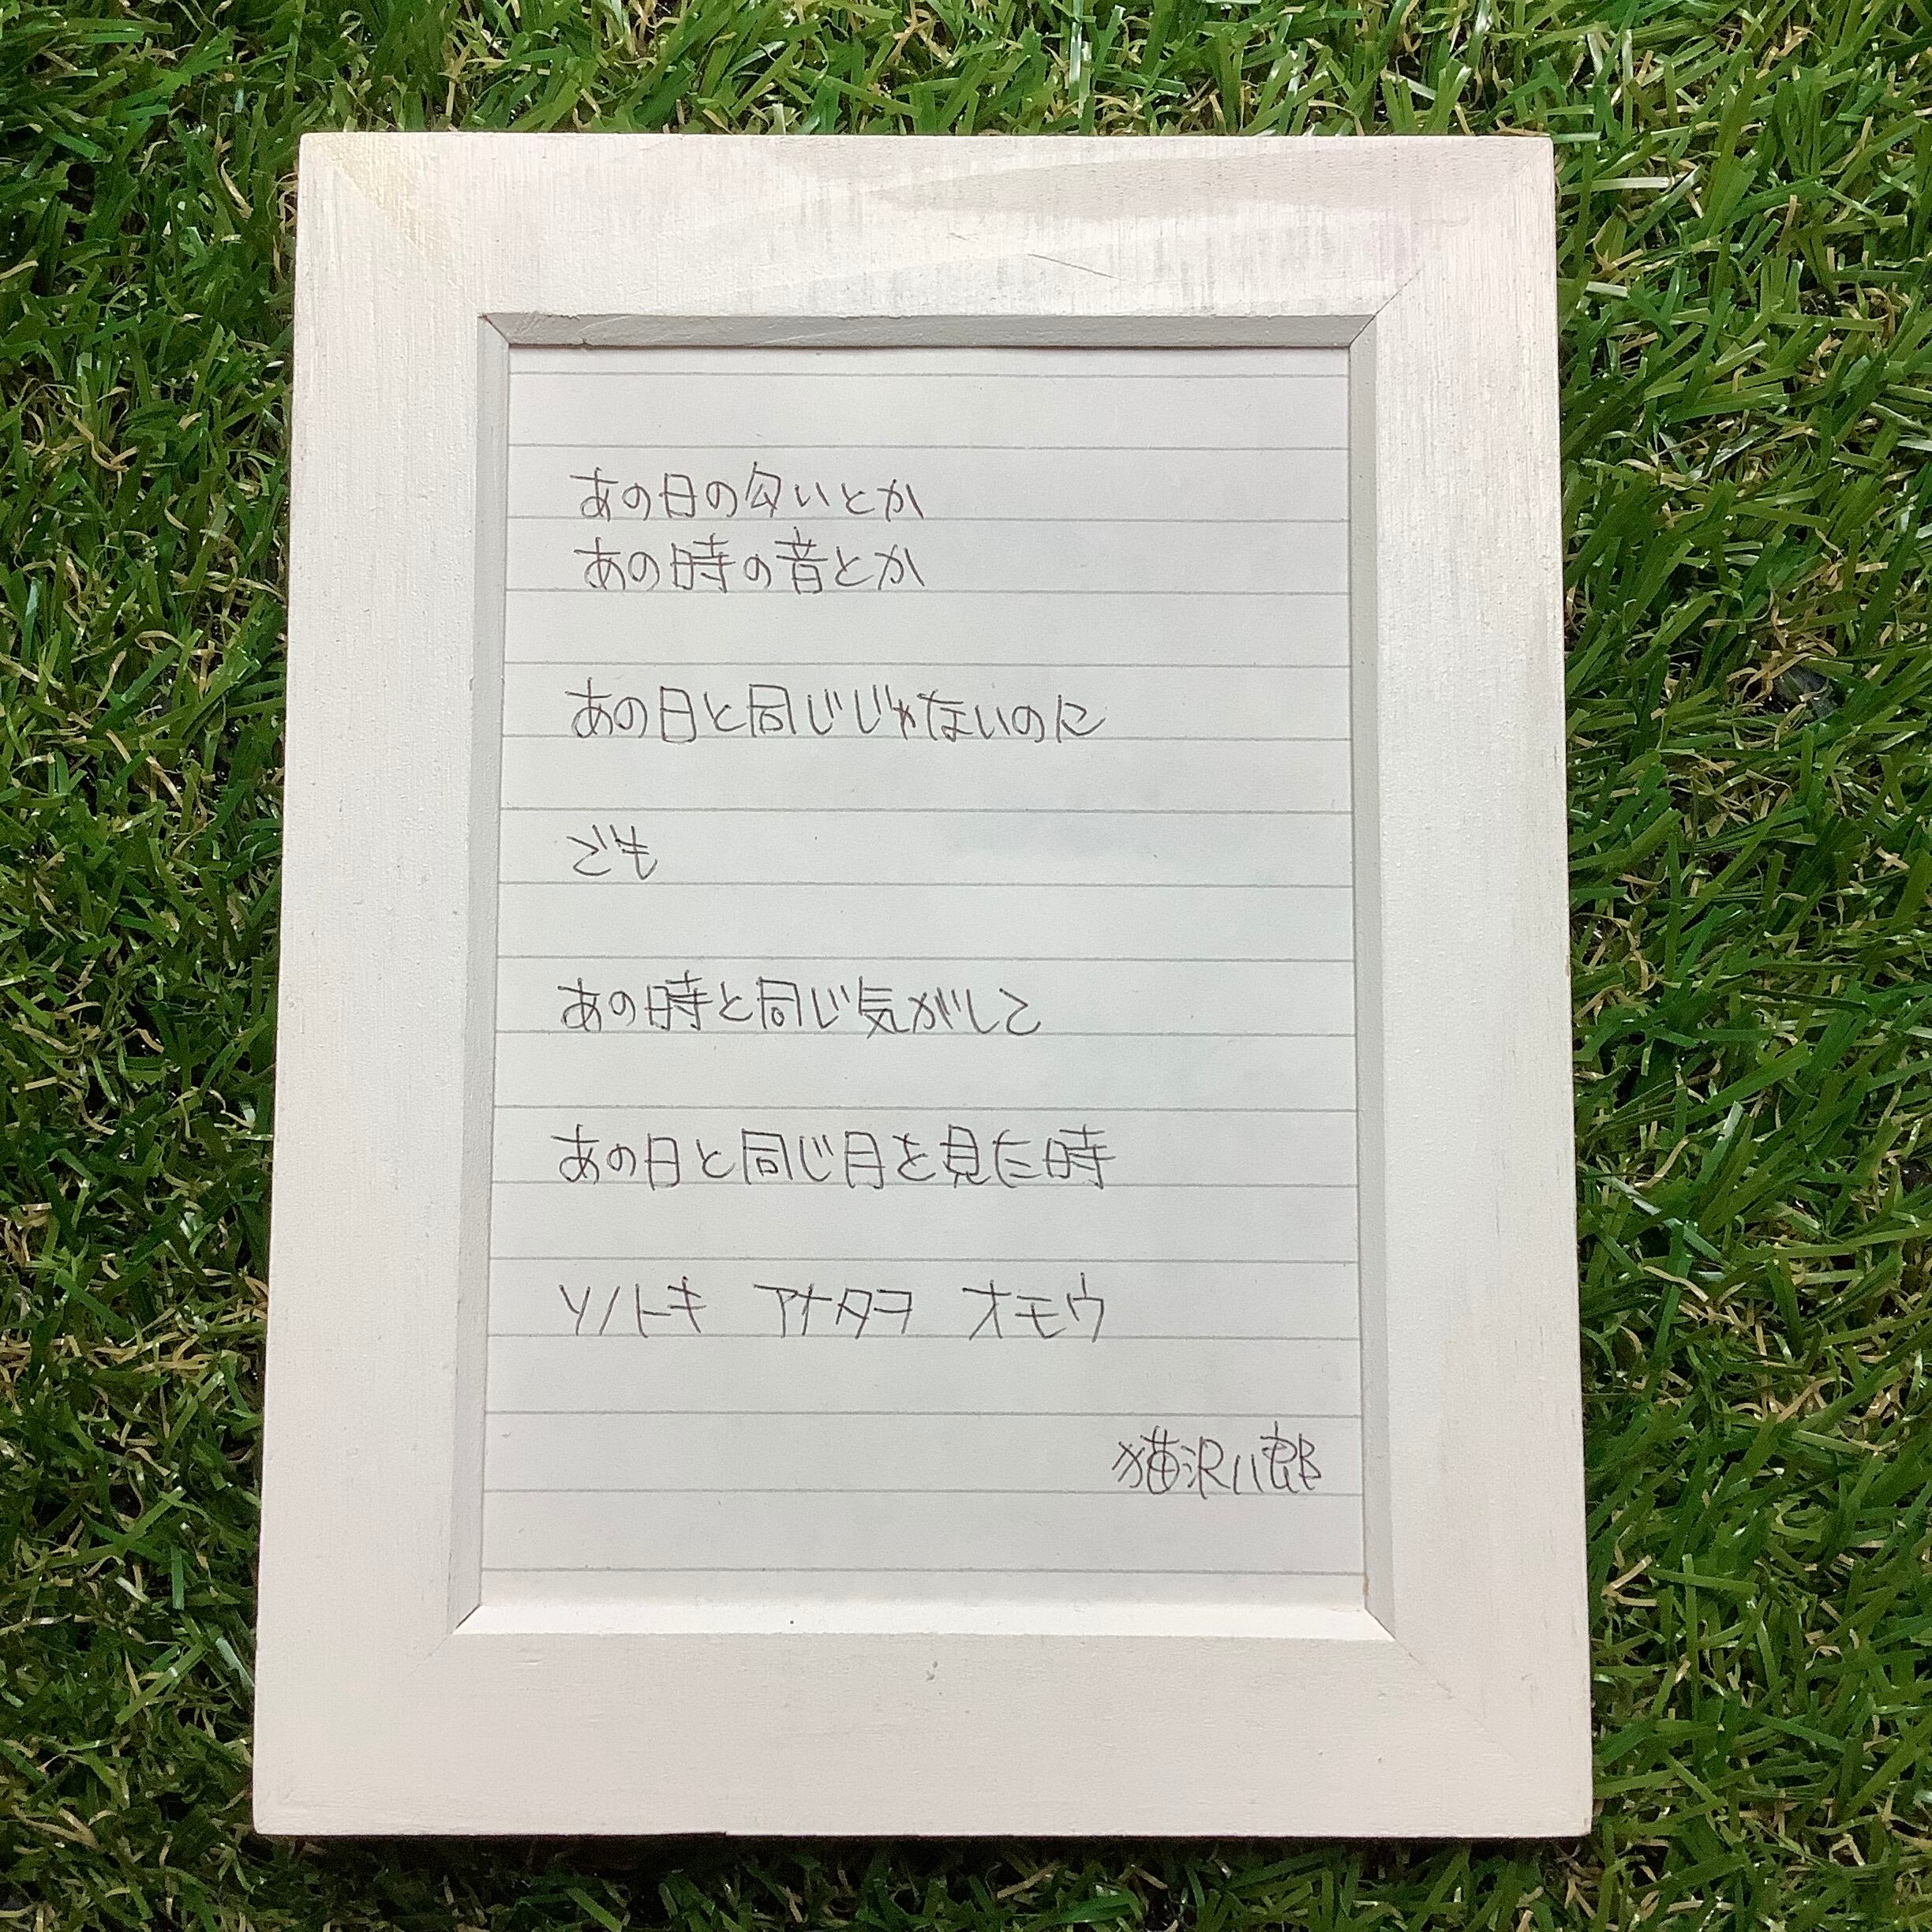 あの日の匂いとか
あの時の音とか
あの日と同じじゃないのに
でも
あの時と同じ気がして
あの日と同じ月を見た時
ソノトキ　アナタヲ　オモウ
猫沢八郎